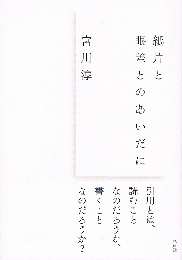 紙片と
眼差とのあいだに
宮川淳
引用とは、
読むこと
なのだろうか、
書くこと
なのだろうか?